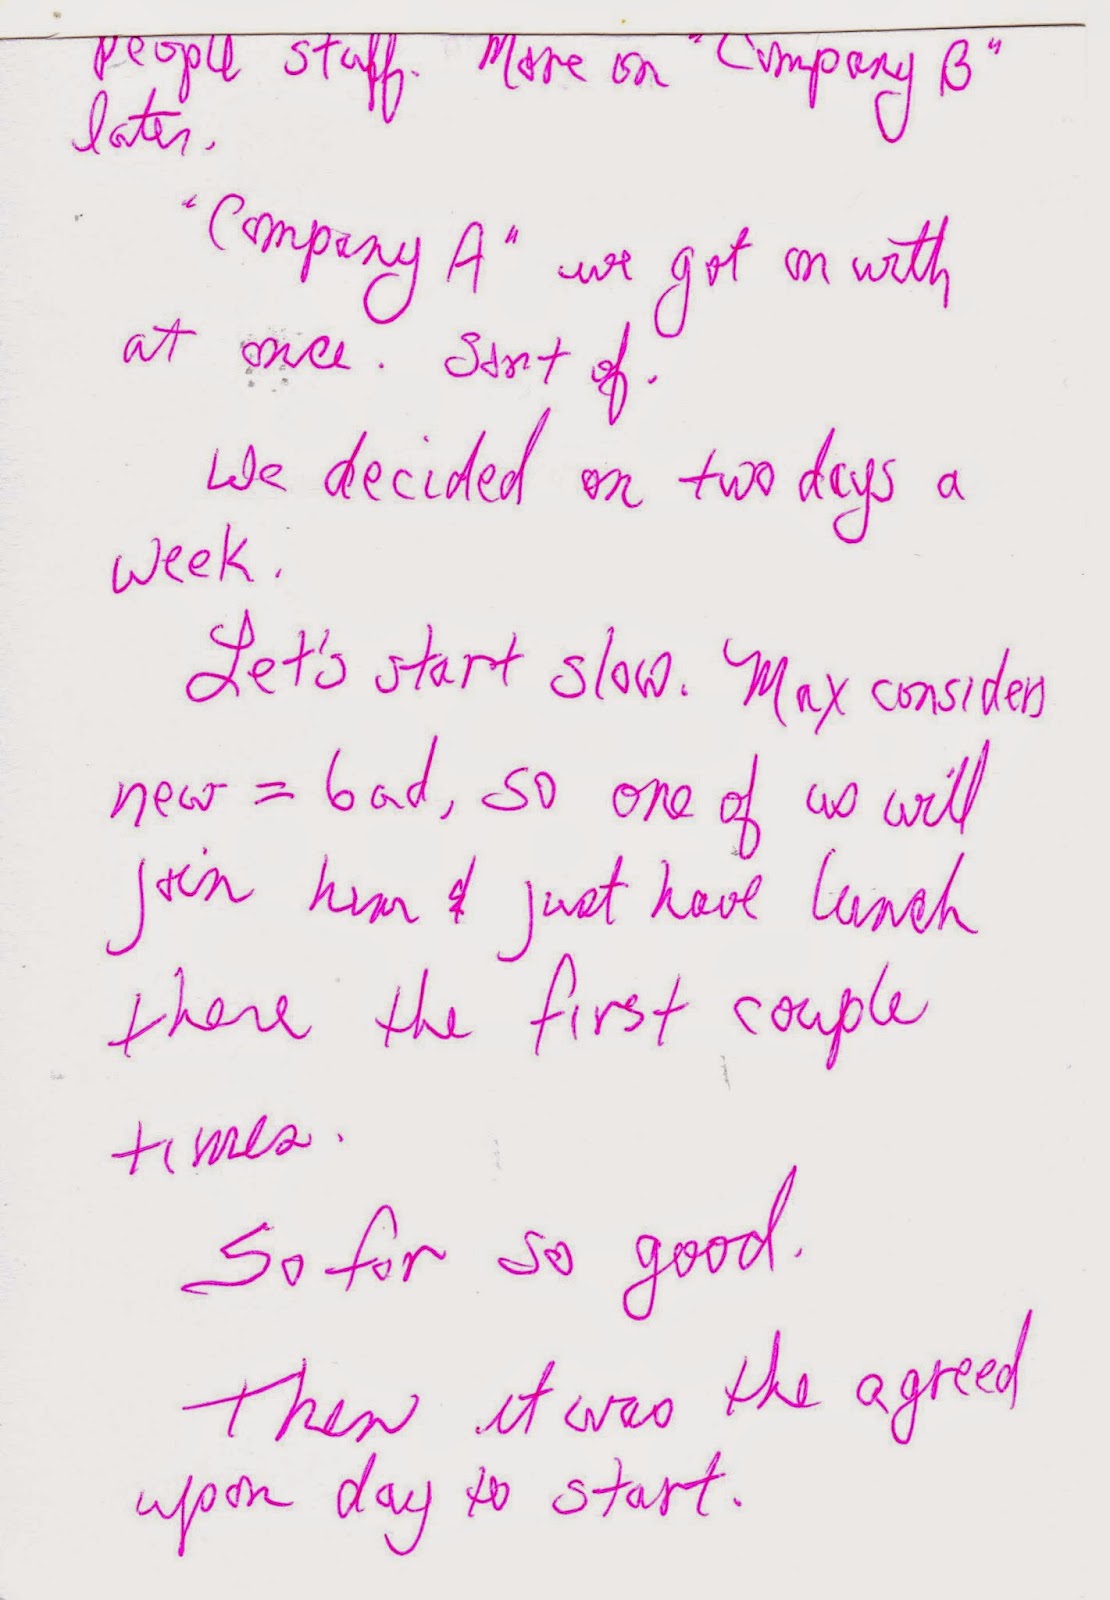 people staff. More on "Company B"
later.
"Company A" we got on with
at once. Sort of.
We decided on two days a
week.
Let's start slow. Max considers
new = bad, so one of us will
join him & just have lunch
there the first couple
times.
So far so good.
Then it was the agreed
upon day to start.